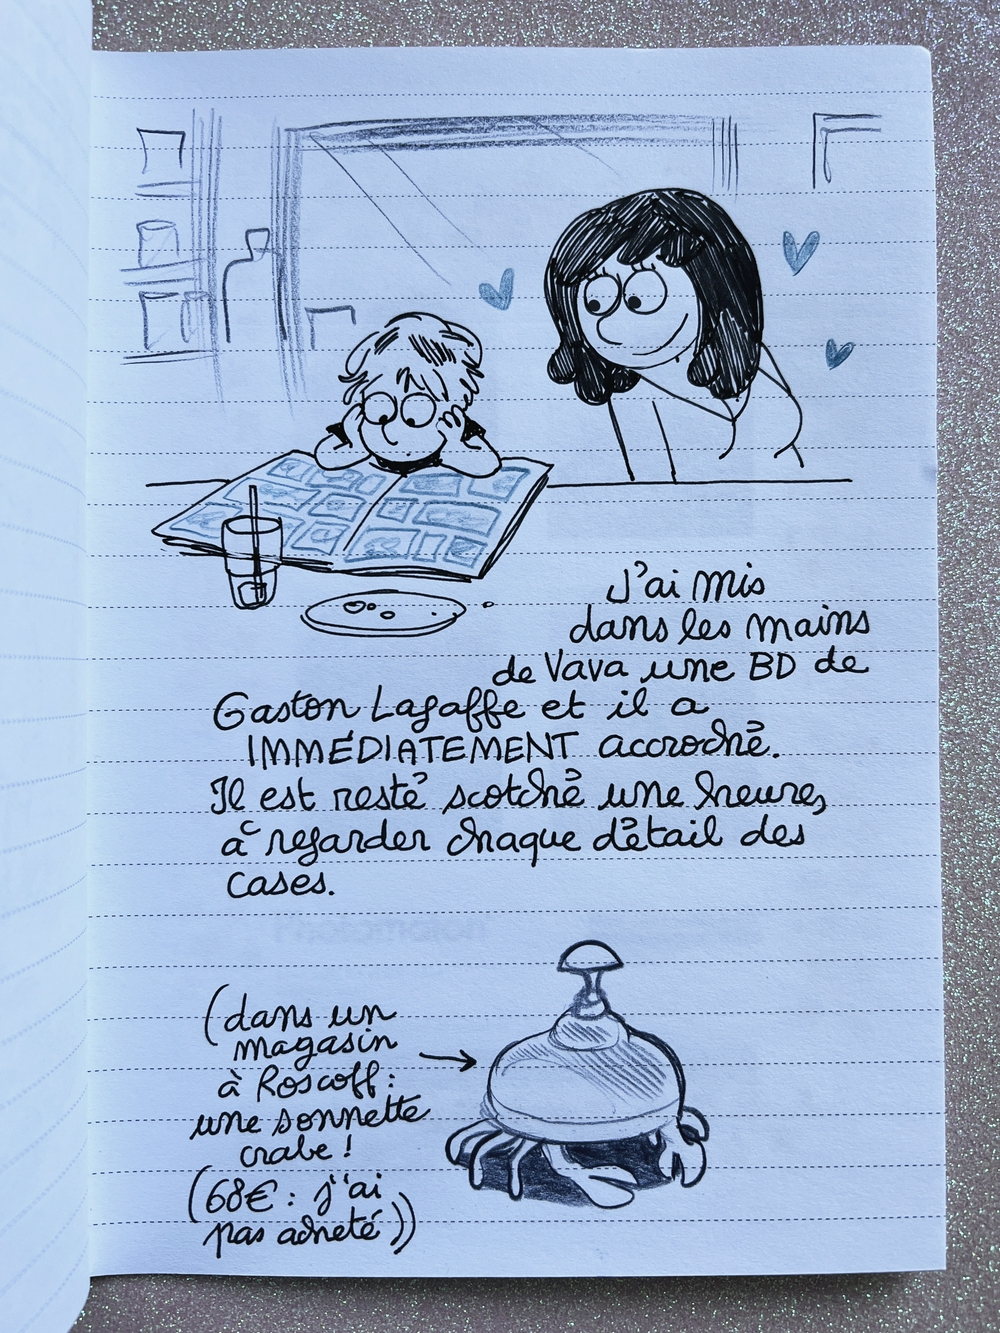 J'ai mis
dans les mains
de Vava une BD de
Gaston Lagaffe et il a
IMMÉDIATEMENT accroché.
Il est resté scotché une heure,
à regarder chaque détail des
cases.
(dans un
magasin
à Roscoff :
une sonnette
crabe !
(68€ : j'ai
pas acheté))